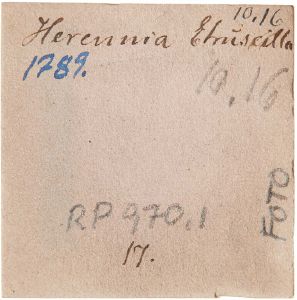 10.16
Herennia Etruscilla
1789.
10.16
RP 970.1
FOTO
17.